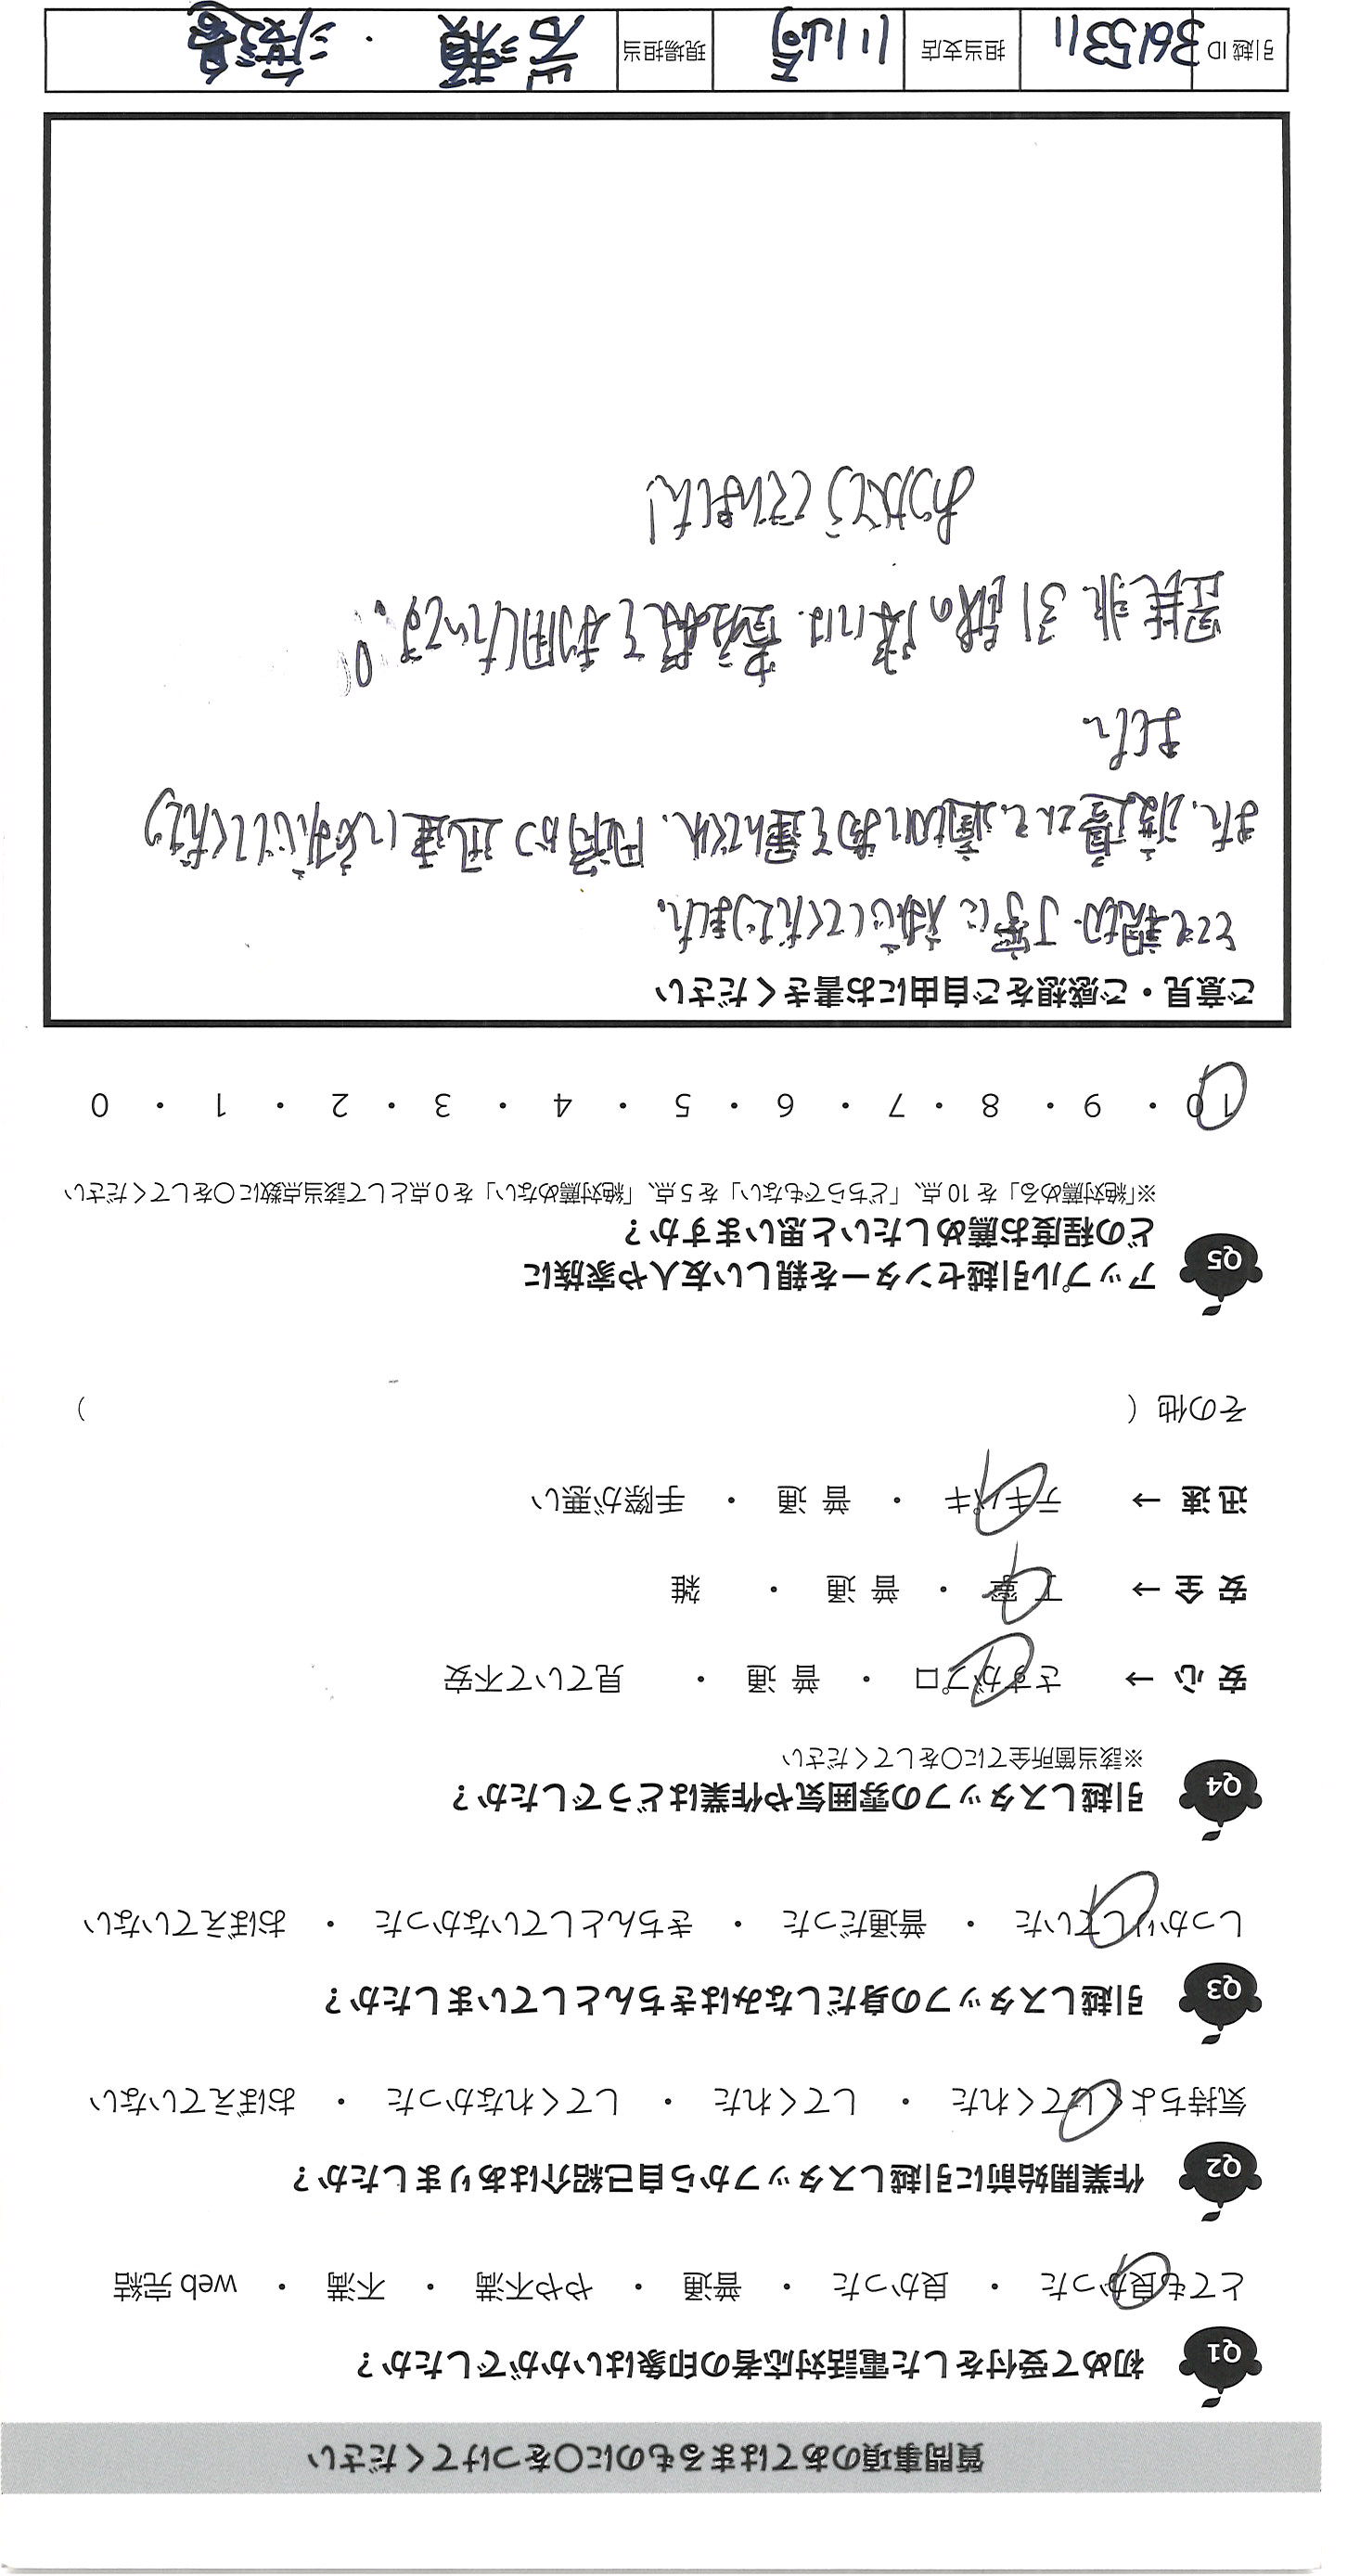 質問事項のあてはまるものに〇をつけてください
Q1 初めて受付をした電話対応者の印象はいかがでしたか?
とても良かった ・ 良かった ・ 普通 ・ やや不満 ・ 不満 ・ web 完結
Q2 作業開始前に引越しスタッフから自己紹介はありましたか?
気持ちよくしてくれた ・ してくれた ・ してくれなかった ・ おぼえていない
Q3 引越しスタッフの身だしなみはきちんとしていましたか?
しっかりしていた ・ 普通だった ・ きちんとしていなかった ・ おぼえていない
Q4 引越しスタッフの雰囲気や作業はどうでしたか?
※該当箇所全てに〇をしてください
安 心 → さすがプロ ・ 普 通 ・ 見ていて不安
安 全 → 丁 寧 ・ 普 通 ・ 雑
迅 速 → テキパキ ・ 普 通 ・ 手際が悪い
その他 ( )
Q5 アップル引越センターを親しい友人や家族に
どの程度お薦めしたいと思いますか?
※「絶対薦める」を 10 点、「どちらでもない」を 5 点、「絶対薦めない」を 0 点として該当点数に〇をしてください
10 ・ 9 ・ 8 ・ 7 ・ 6 ・ 5 ・ 4 ・ 3 ・ 2 ・ 1 ・ 0
ご意見・ご感想をご自由にお書きください
とても親切、丁寧に対応してくださりました。
また、渡邉さんも適切に物を運んでくれ、円滑かつ迅速に対応してくださり
ました。
是非、引越の際には、利用したいです。
ありがとうございました!
引越 ID 3615311 担当支店 川崎 現場担当 岩瀬 ・ 渡邉